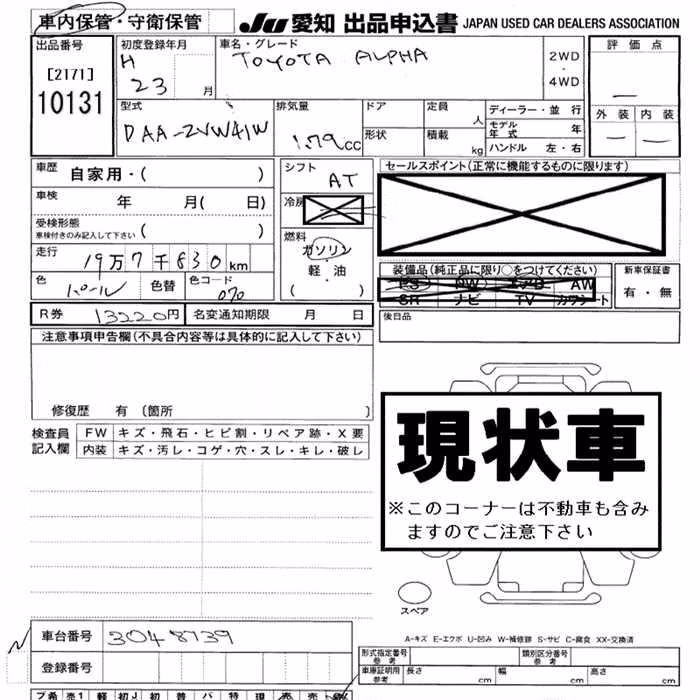 車内保管・守衛保管
JU 愛知 出品申込書 JAPAN USED CAR DEALERS ASSOCIATION
出品番号
[2171]
10131
初度登録年月
H
23 月
車名・グレード
TOYOTA ALPHA
2WD
・
4WD
評価点
外装 内装
型式
DAA-ZVW41W
排気量
1.79cc
ドア
形状
定員 人
積載 kg
ディーラー・並行
モデル年式 年
ハンドル 左・右
車歴 自家用・( )
車検 年 月( 日)
受検形態
車検付きのみ記入して下さい ( )
走行
19万7千830km
色 パール 色替 色コード 070
シフト
AT
冷房
燃料
ガソリン
・
軽・油
( )
セールスポイント(正常に機能するものに限ります)
装備品(純正品に限り○をつけてください)
PS PW エアB AW
SR ナビ TV カワシート
新車保証書
有・無
後日品
R券 13220円 名変通知期限 月 日
注意事項申告欄(不具合内容等は具体的に記入して下さい)
修復歴 有 〔箇所 〕
検査員
記入欄
FW キズ・飛石・ヒビ割・リペア跡・X要
内装 キズ・汚レ・コゲ・穴・スレ・キレ・破レ
現状車
※このコーナーは不動車も含み
ますのでご注意下さい
スペア
A-キズ E-エクボ U-凹み W-補修跡 S-サビ C-腐食 XX-交換済
車台番号 3048739
登録番号
形式指定番号
参考
類別区分番号
参考
車庫証明用
参考
長さ cm 幅 cm 高さ cm